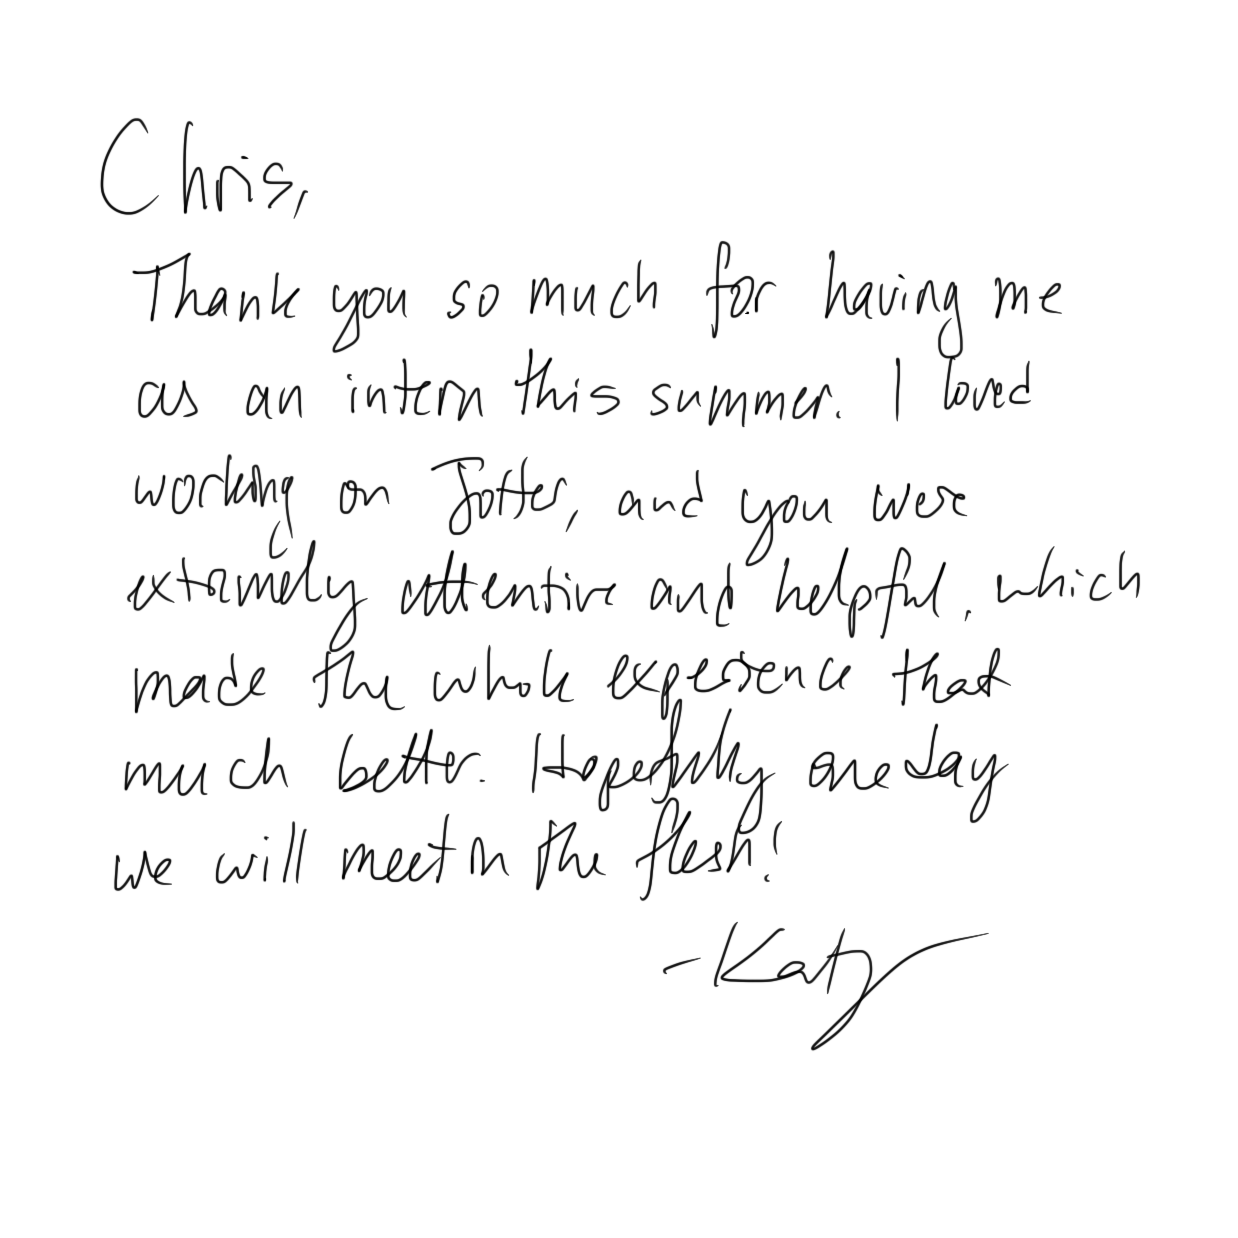 Chris,
Thank you so much for having me
as an intern this summer. I loved
working on Jotter, and you were
extremely attentive and helpful, which
made the whole experience that
much better. Hopefully one day
we will meet in the flesh!
-Katy